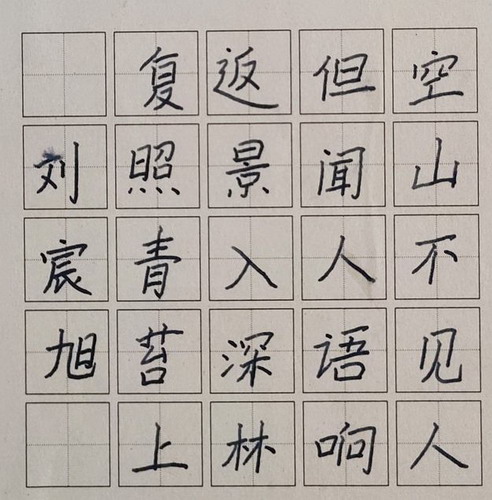 空山不见人
但闻人语响
返景入深林
复照青苔上
刘宸旭